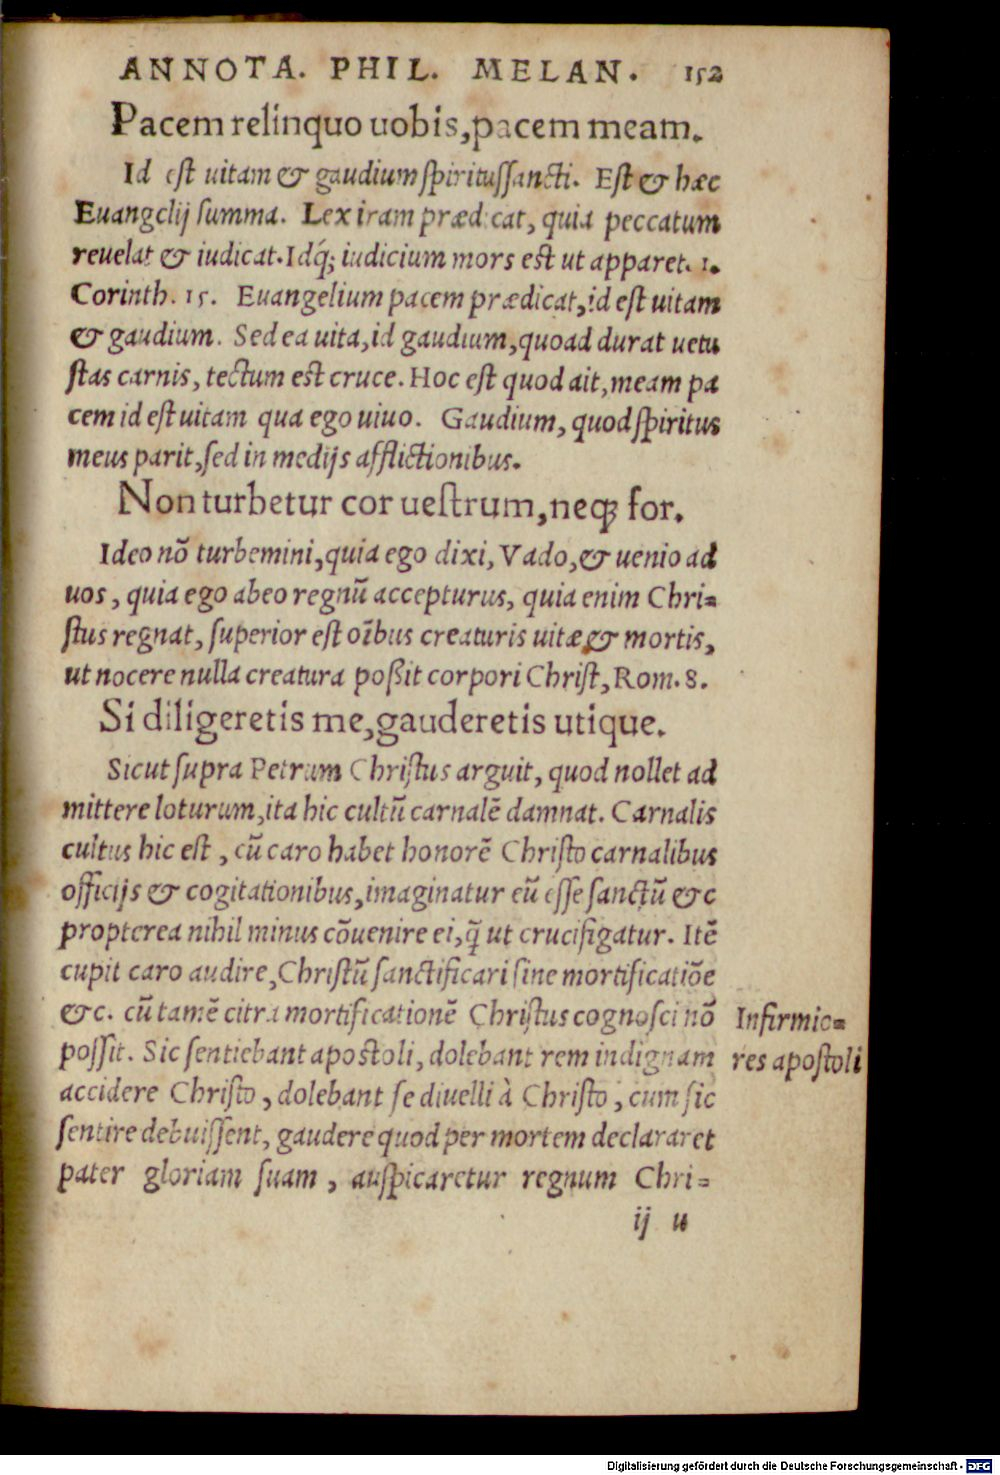 ANNOTA. PHIL. MELAN. 152
Pacem relinquo uobis, pacem meam.
Id est uitam & gaudium spiritussancti. Est & hæc
Euangelij summa. Lex iram prædicat, quia peccatum
reuelat & iudicat. Idq́; iudicium mors est ut apparet. 1.
Corinth. 15. Euangelium pacem prædicat, id est uitam
& gaudium. Sed ea uita, id gaudium, quoad durat uetu
stas carnis, tectum est cruce. Hoc est quod ait, meam pa
cem id est uitam qua ego uiuo. Gaudium, quod spiritus
meus parit, sed in medijs afflictionibus.
Non turbetur cor uestrum, neqꝫ for.
Ideo nō turbemini, quia ego dixi, Vado, & uenio ad
uos, quia ego abeo regnū accepturus, quia enim Chri-
stus regnat, superior est oībus creaturis uitæ & mortis,
ut nocere nulla creatura poßit corpori Christ, Rom. 8.
Si diligeretis me, gauderetis utique.
Sicut supra Petrum Christus arguit, quod nollet ad
mittere loturum, ita hic cultū carnalē damnat. Carnalis
cultus hic est, cū caro habet honorē Christo carnalibus
officijs & cogitationibus, imaginatur eū esse sanctū &c
propterea nihil minus cōuenire ei, q̄ ut crucifigatur. Itē
cupit caro audire, Christū sanctificari sine mortificatiōe
&c. cū tamē citra mortificationē Christus cognosci nō
possit. Sic sentiebant apostoli, dolebant rem indignam
accidere Christo, dolebant se diuelli à Christo, cum sic
sentire debuissent, gaudere quod per mortem declararet
pater gloriam suam, auspicaretur regnum Chri-
ij u
Infirmio-
res apostoli
Digitalisierung gefördert durch die Deutsche Forschungsgemeinschaft - DFG